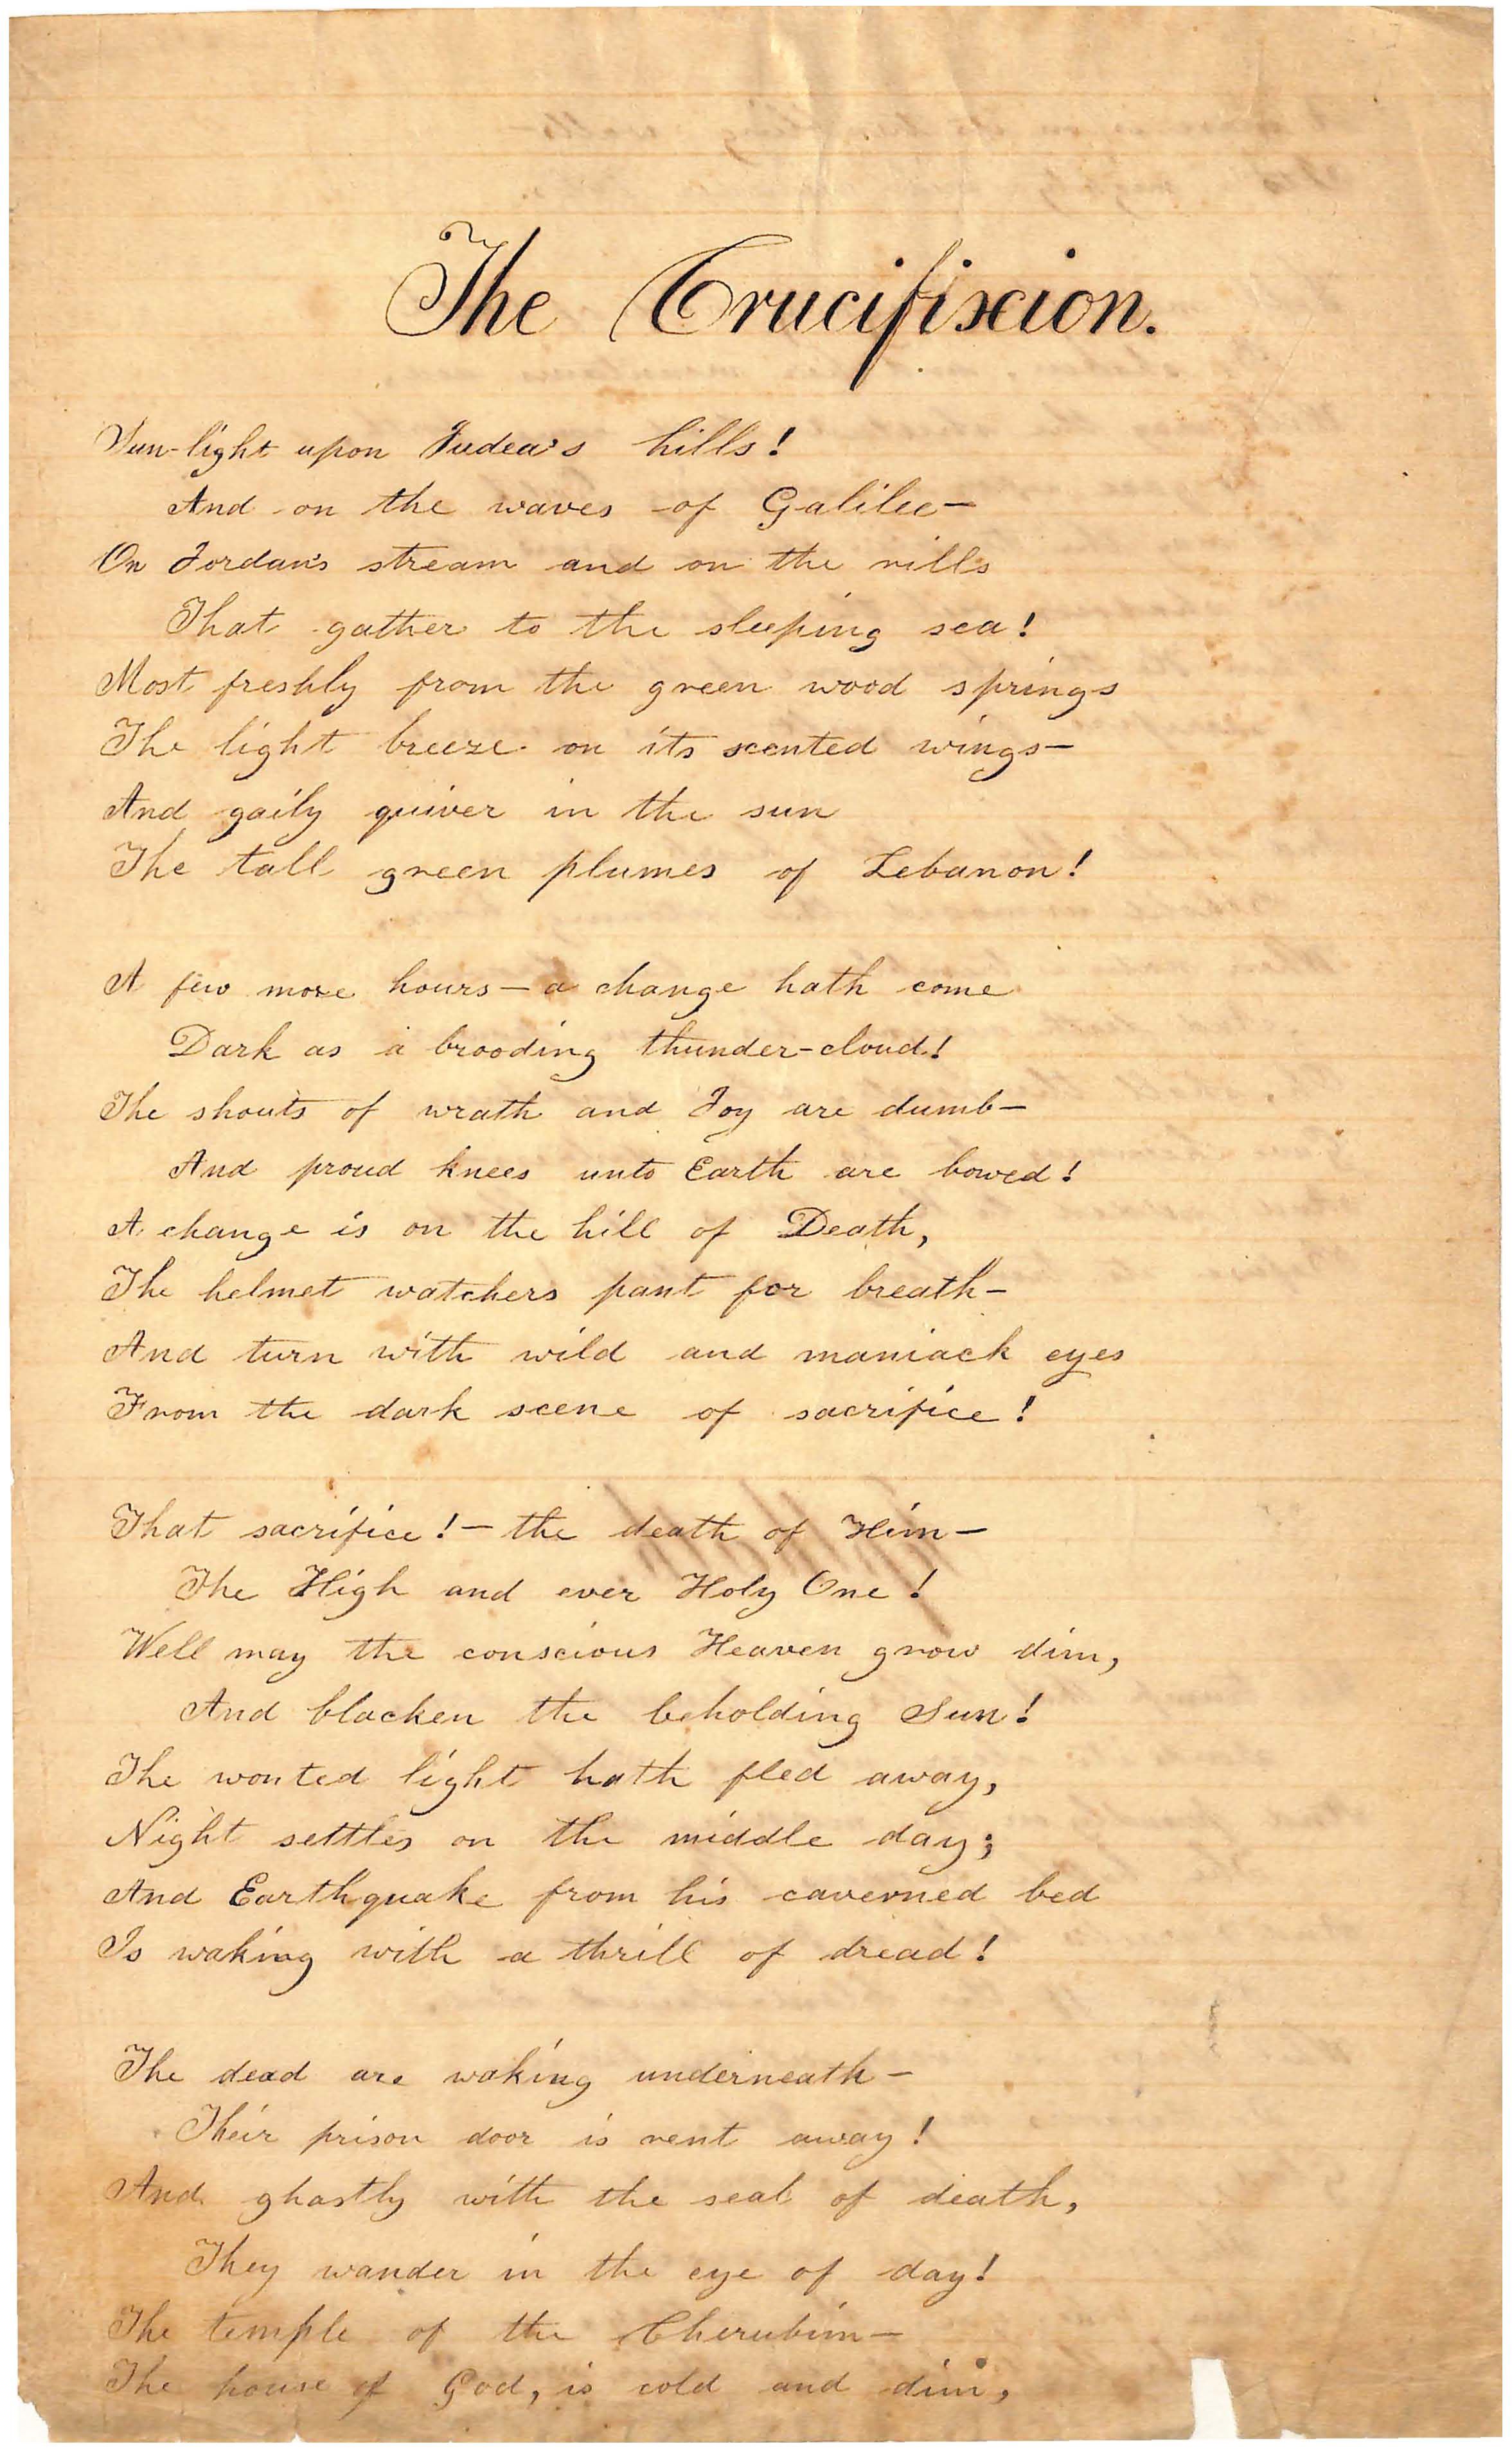 The Crucifixion.
Sun-light upon Judea's hills!
And on the waves of Galilee—
On Jordan's stream and on the rills
That gather to the sleeping sea!
Most freshly from the green wood springs
The light breeze on its scented wings—
And gaily quiver in the sun
The tall green plumes of Lebanon!
A few more hours—a change hath come
Dark as a brooding thunder-cloud!
The shouts of wrath and Joy are dumb—
And proud knees unto Earth are bowed!
A change is on the hill of Death,
The helmet watchers pant for breath—
And turn with wild and maniack eyes
From the dark scene of sacrifice!
That sacrifice!—the death of Him—
The High and ever Holy One!
Well may the conscious Heaven grow dim,
And blacken the beholding Sun!
The wonted light hath fled away,
Night settles on the middle day;
And Earthquake from his caverned bed
Is waking with a thrill of dread!
The dead are waking underneath—
Their prison door is rent away!
And ghastly with the seal of death,
They wander in the eye of day!
The temple of the Cherubim—
The house of God, is cold and dim,